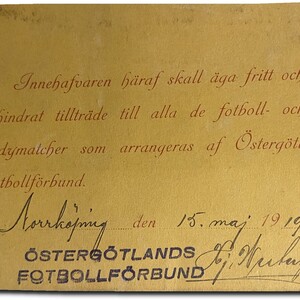 Innehafvaren häraf skall äga fritt och
hindrat tillträde till alla de fotboll- och
dymatcher som arrangeras af Östergöt
tbollförbund.
Norrköping den 15 maj 1919
ÖSTERGÖTLANDS
FOTBOLLFÖRBUND